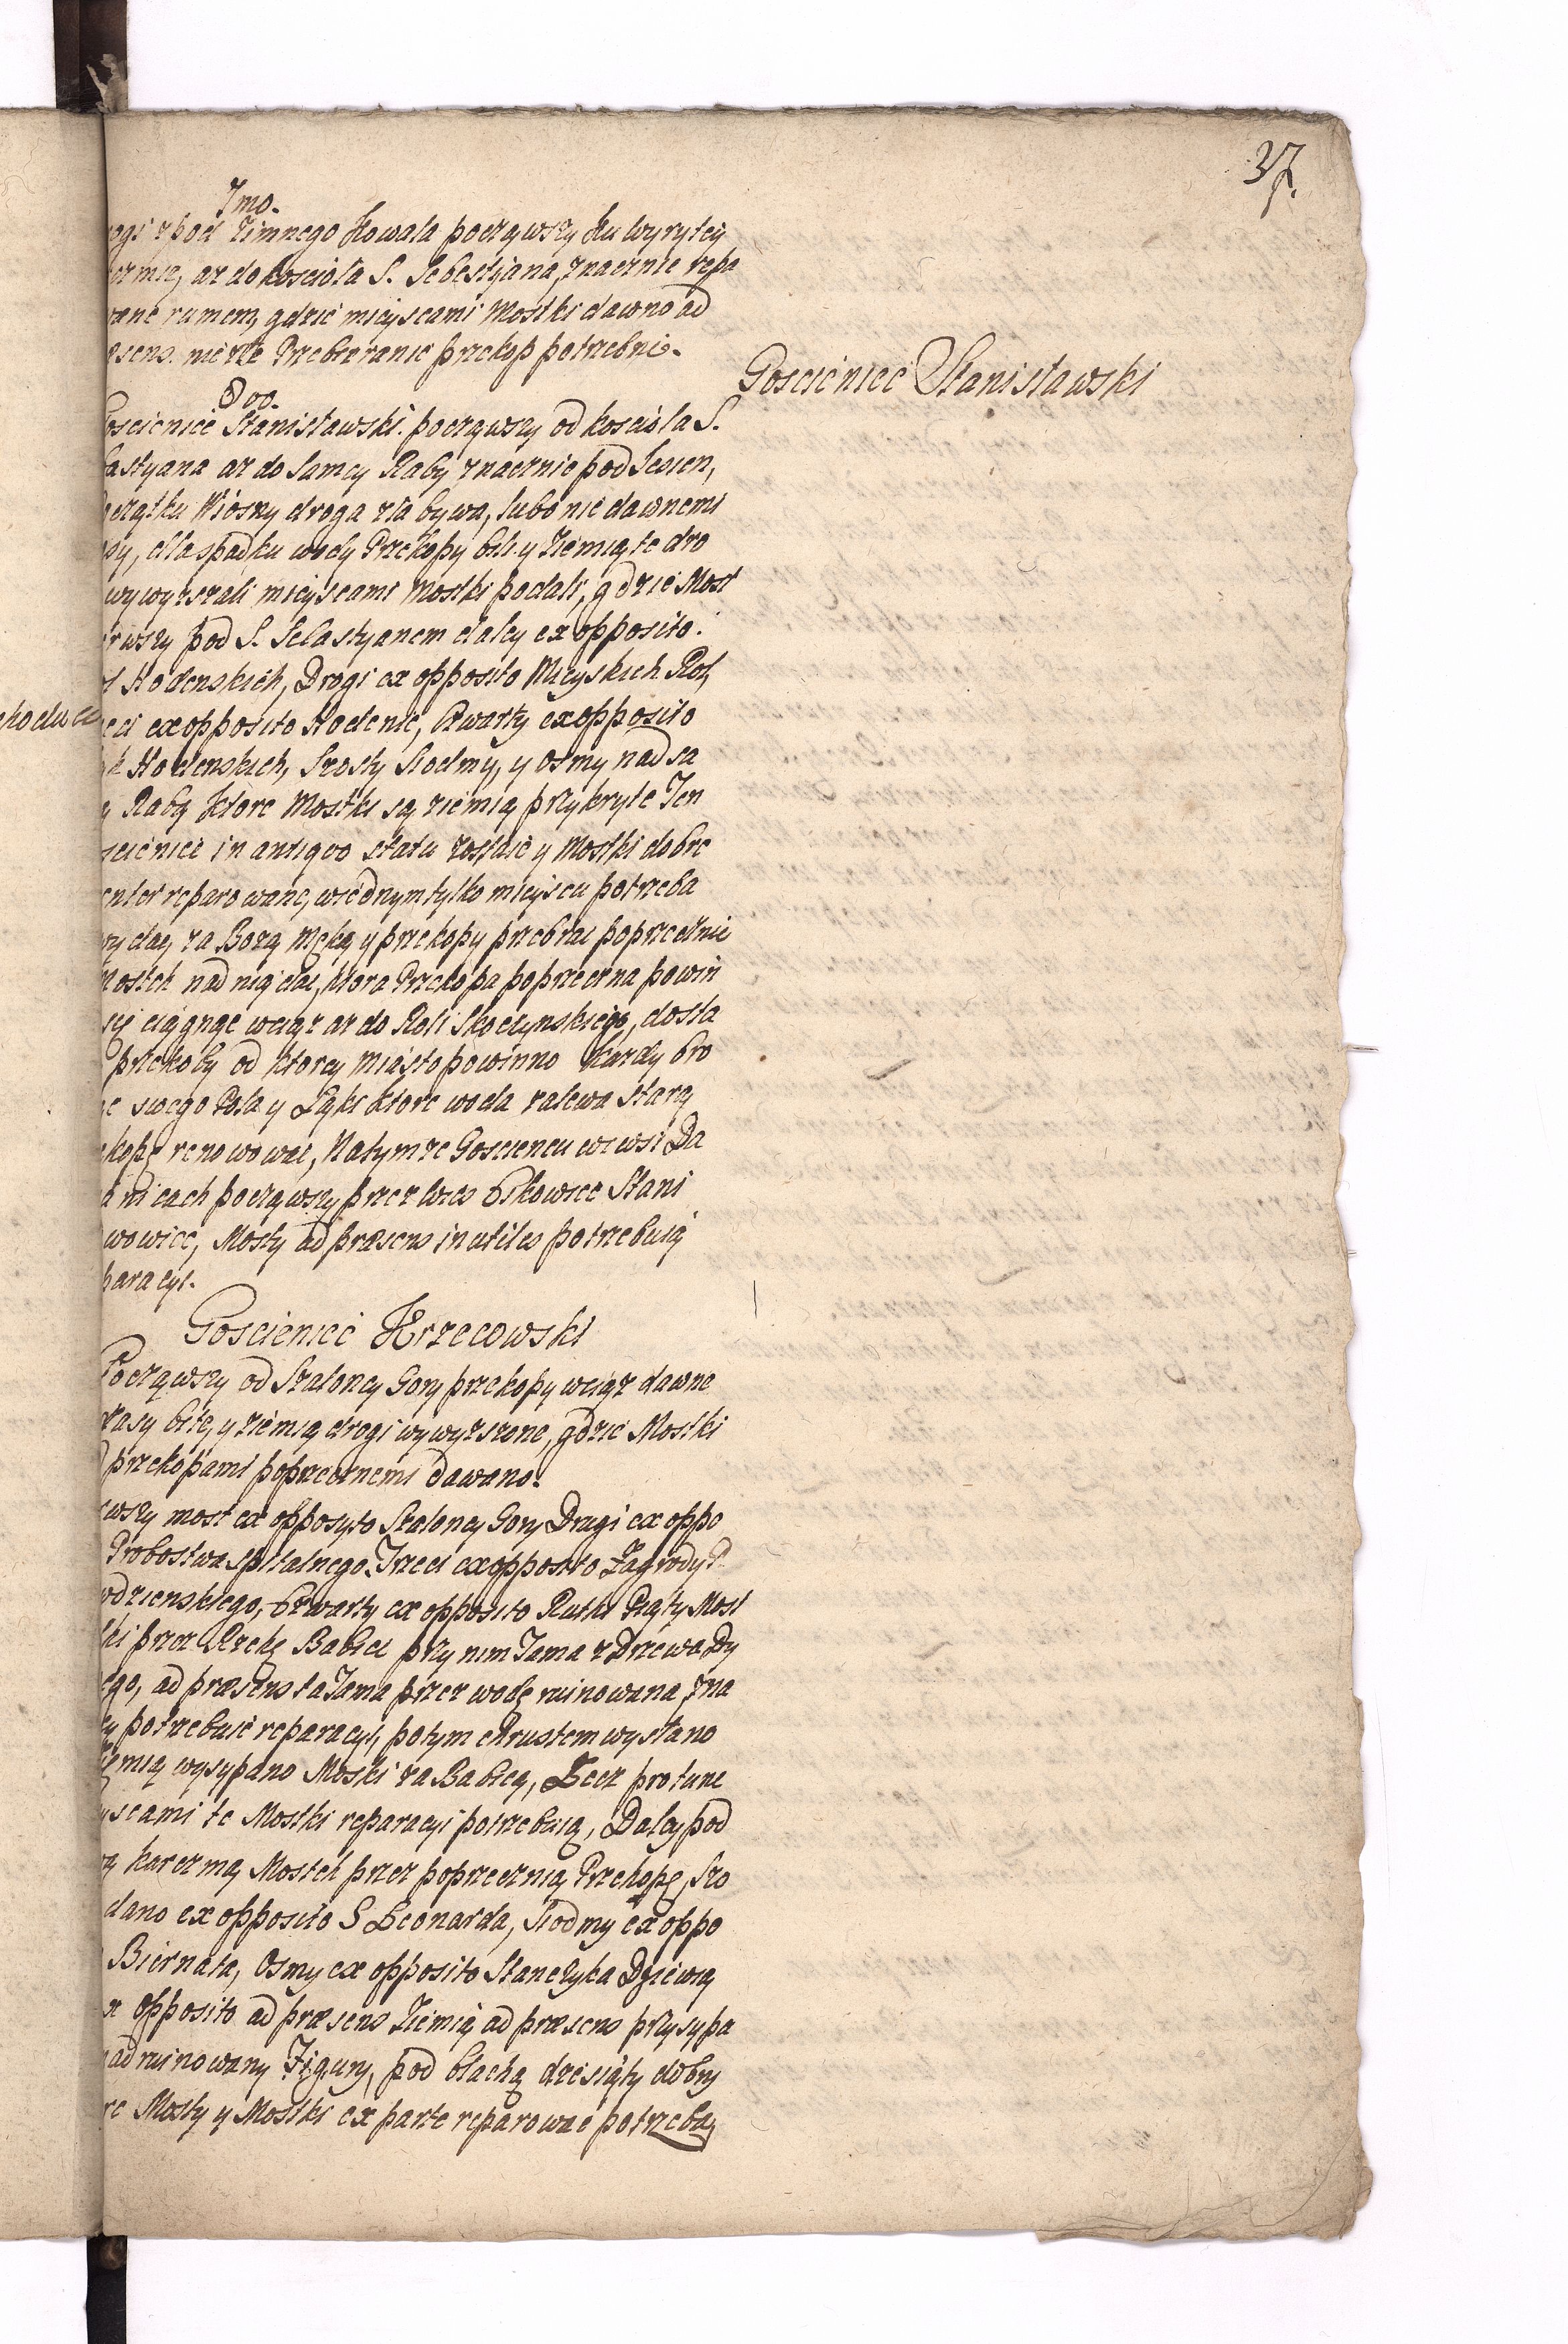 37.
1mo.
ogi z pod Zimnego Kowala począwszy ku wyrytey
czmie, az do koscioła S. Sebestyana, znacznie repa
wane rumem, gdzie mieyscami Mostki dawno ad
æsens. niezłe Przebieranie przekop potrzebnie.
2do.
Gosciéniec Stanisławski
oscieniec Stanisławski. począwszy od koscioła S.
bastyana az do samey Raby znacznie pod Iesien,
początku Wiosny droga zła bywa, lubo nie dawnemi
sy, dla spadku wody Przekopy bili y Ziemią te dro
wywyzszali mieyscami Mostki podali, gdzie Most
rwszy pod S. Sebastyanem daley ex opposito.
l Hodenskich, Drogi ex opposito Mieyskich Rol,
eci ex opposito Hodenic, Czwarty ex opposito
k Hodenskich, Szosty Siodmy, y osmy nad sa
ą Rabą ktore Mostki są ziemią przykryte Ten
sciéniec in antiqvo statu zostaie y Mostki dobre
enter reparowane, wiednym tylko mieyscu potrzeba
ry day za Bozą Męką y przekopy przebrac poprzecznie
mostek nad nią dac, ktora Przekopa poprzeczna powin
się ciągnąć wciąz az do Roli Skoczynskiego, dosta
przekopy od ktorey miasto powinno kazdy bro
ąc swego Pola y Łąki ktore woda zalewa starą
ekopę renowować, Natymze Goscieńcu wewsi Da
nicach począwszy przez wies Cikowice Stani
wowice, Mosty ad præsens inutiles potrzebuią
paracyi.
Gosciéniec Krzecowski
Począwszy od Szaloney Gory przekopy wciąz dawne
czasy bite, y ziemią drogi wywyzszone, gdzie Mostki
d przekopami poprzecznemi dawano.
rwszy most ex opposyto Szaloney Gory Drugi ex oppo
Probostwa spitalnego. Trzeci ex opposito Zagrody P.
odzienskiego, Czwarty ex opposito Rutki Piąty Most
ki przez Rzekę Babicę przy nim Tama z Drzewa Dy
ego, ad præsens ta Tama przez wodę ruinowana, zna
ey potrzebuie reparacyi, potym chrustem wysłano
iemią wysypano Mostki za Babicą, Lecz pro tunc
yscami te Mostki reparacyi potrzebuią, Daley pod
ą karczmą Mostek przez poprzeczną Przekopę, Szo
dano ex opposito S Leonarda, Siodmy ex oppo
Biernata, Osmy ex opposito Stanczyka Dziewią
x opposito ad præsens Ziemią ad præsens przysypa
nadruinowany Figury, pod blachą dziesiąty dobry
re Mosty y Mostki ex parte reparować potrzeba,